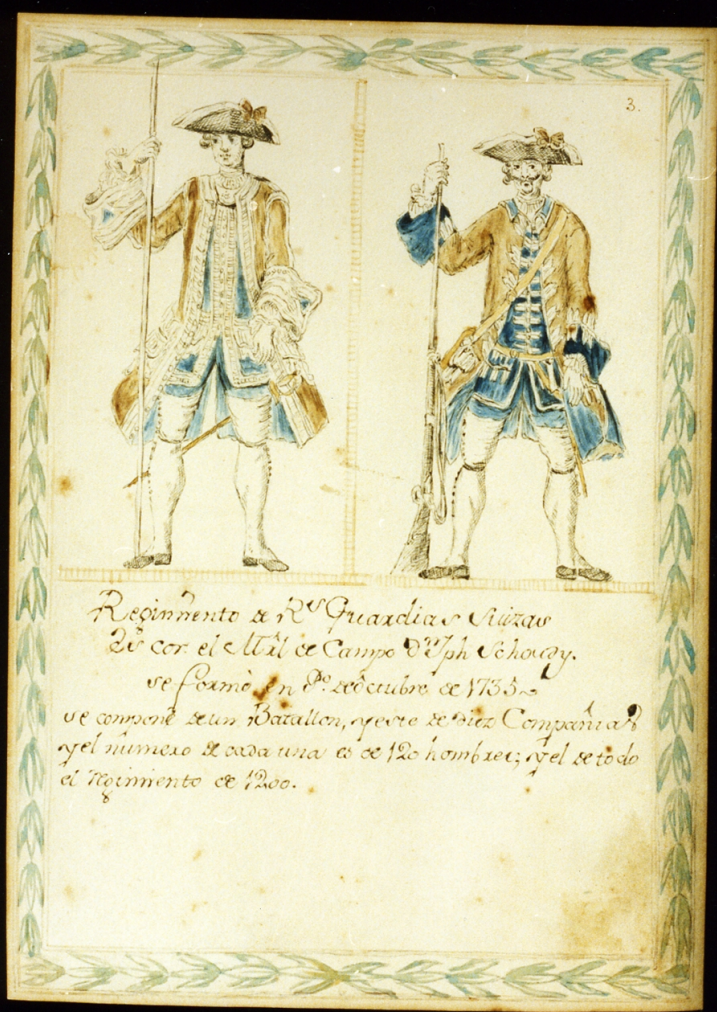 3.
Regimiento de R.s Guardias Suizas
Es cor. el M.ral de Campo D.n Jph Schoudy.
se formò en P.o de Octubre de 1735
se compone de un Batallon, y este de diez Compañias
y el número de cada una es de 120 hombres; y el de todo
el regimiento de 1200.